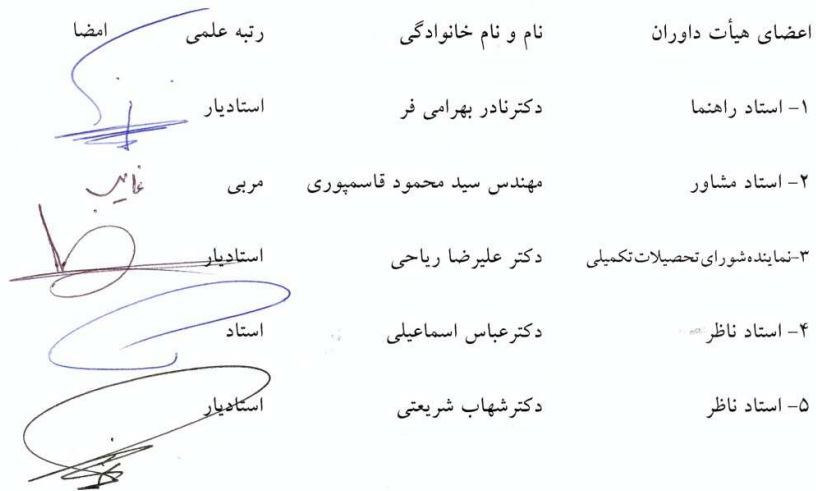 اعضای هیأت داوران نام و نام خانوادگی رتبه علمی امضا
۱- استاد راهنما دکترنادر بهرامی فر استادیار
۲- استاد مشاور مهندس سید محمود قاسمپوری مربی غایب
۳-نماینده‌شورای‌تحصیلات‌تکمیلی دکتر علیرضا ریاحی استادیار
۴- استاد ناظر دکترعباس اسماعیلی استاد
۵- استاد ناظر دکترشهاب شریعتی استادیار